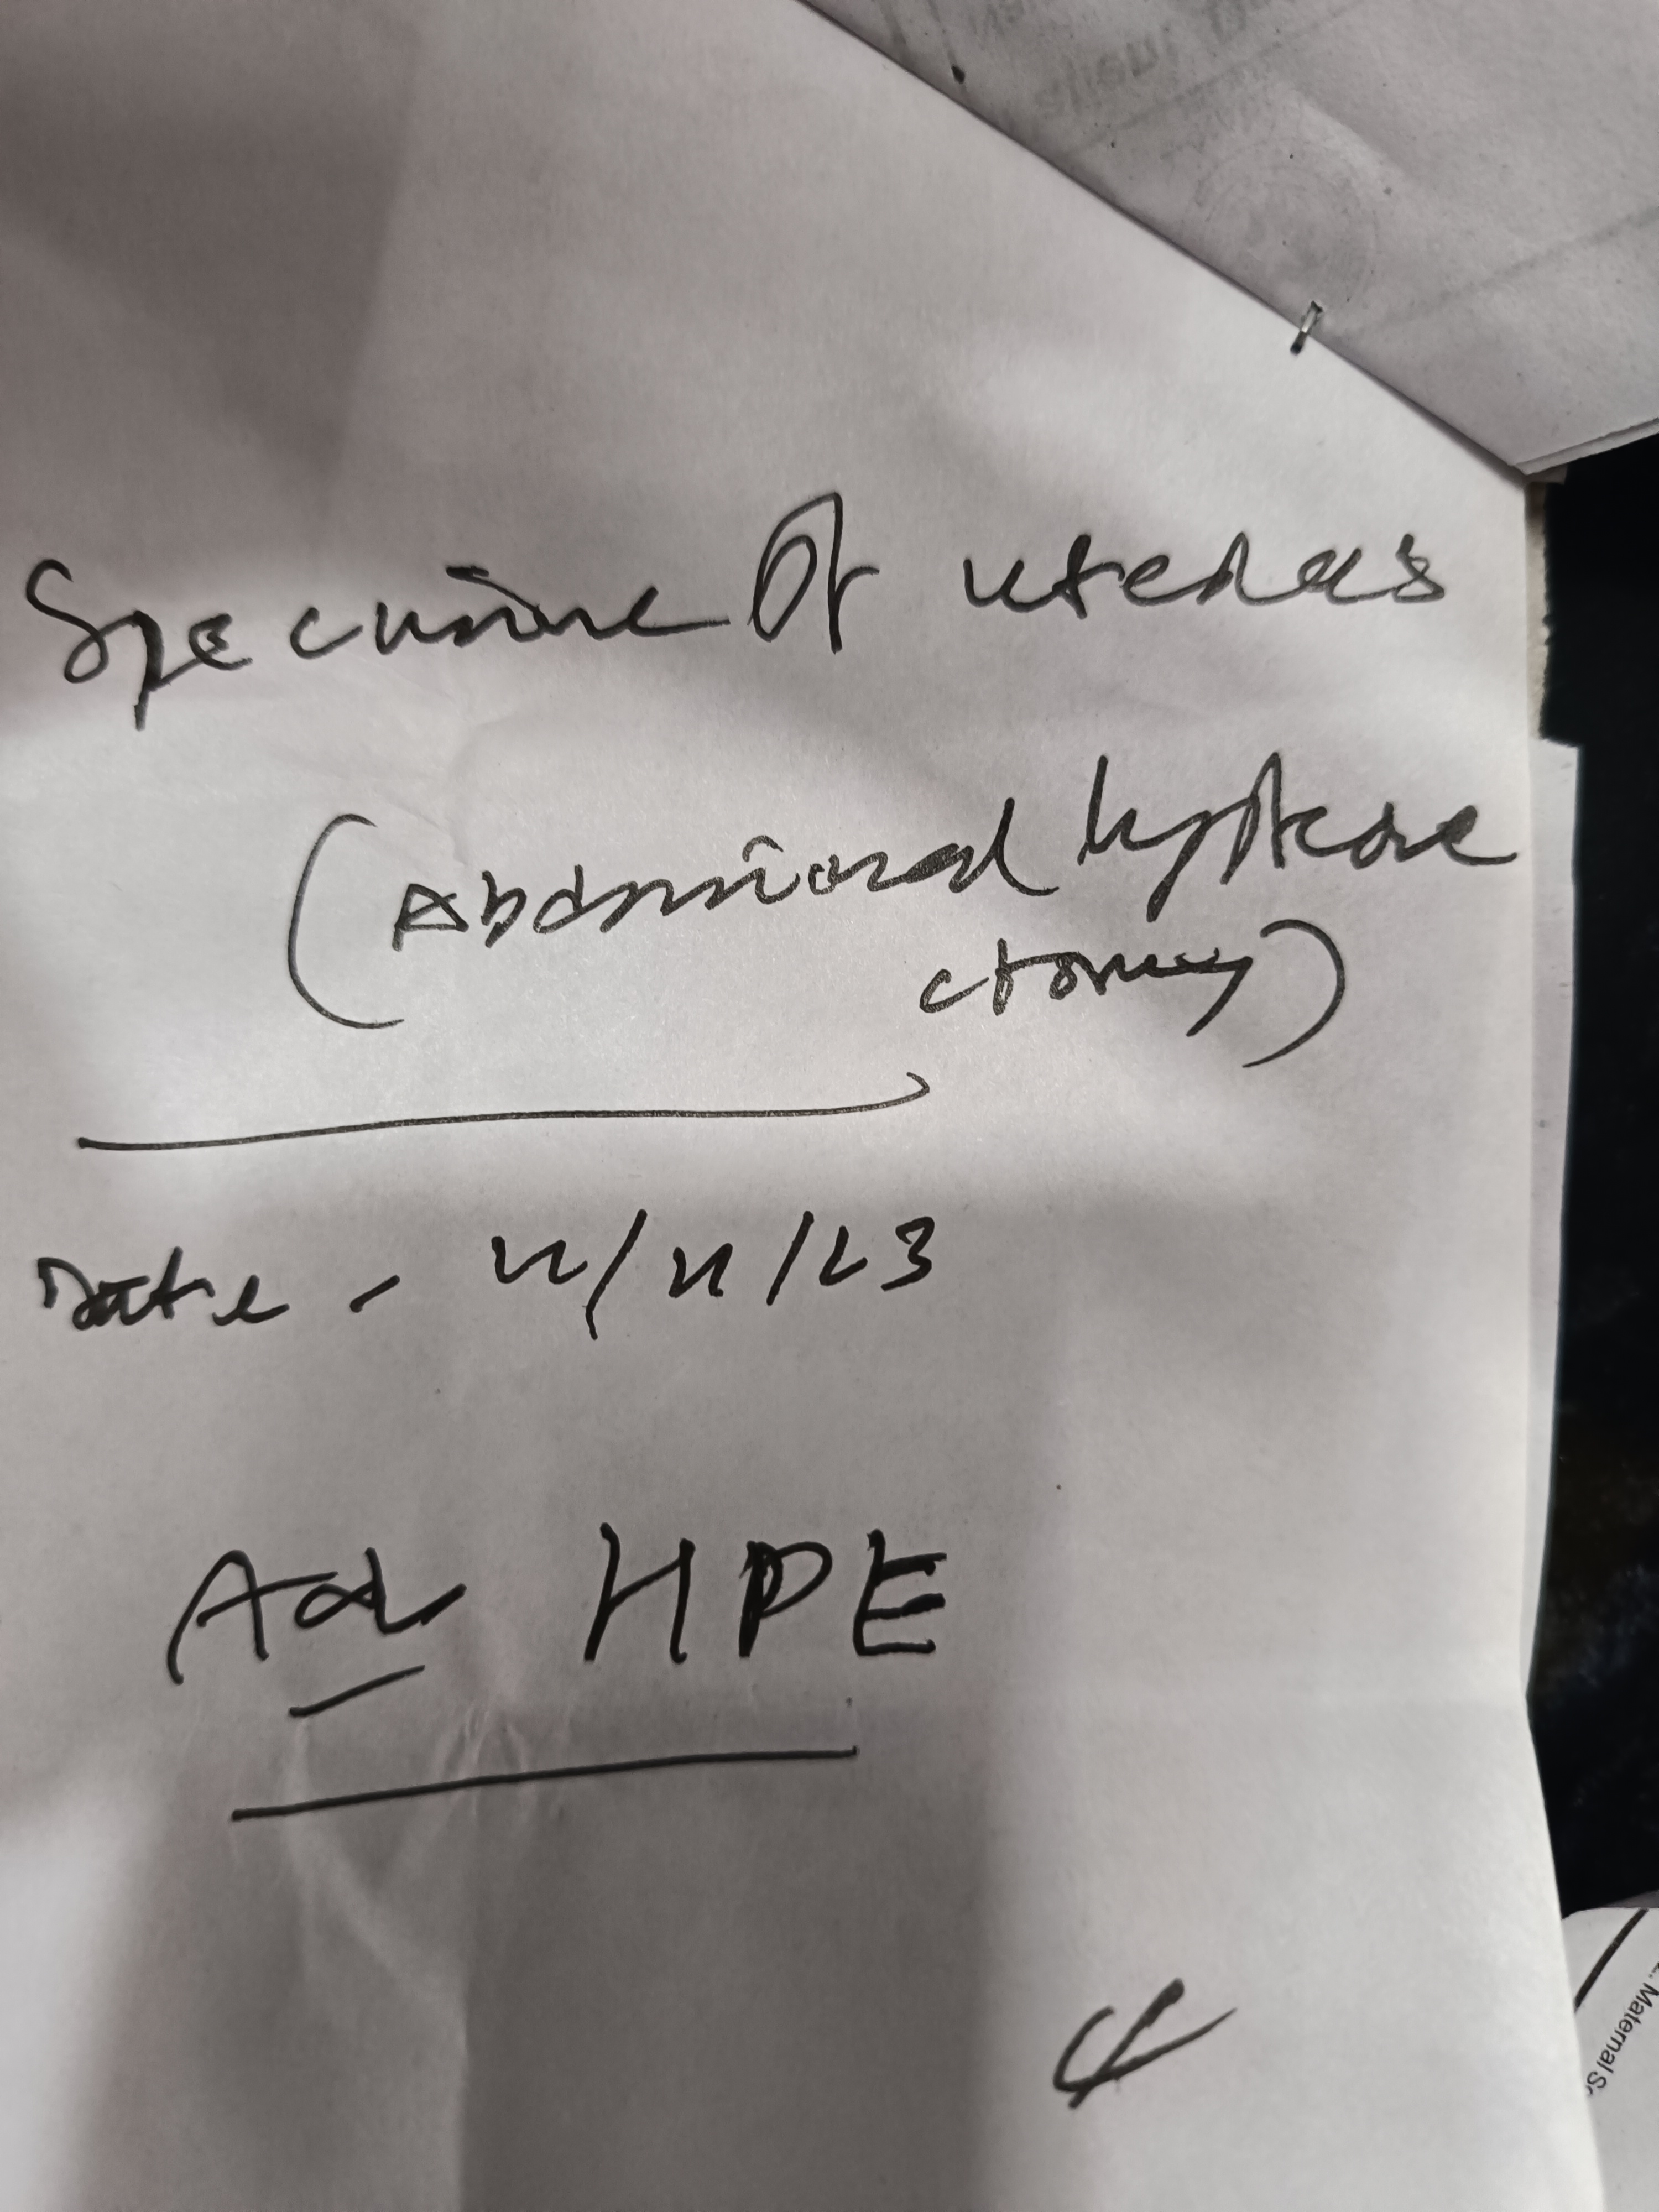 Specimine Of uterus
(Abdominal hystere
ctomy)
Date - 22/11/23
Adv HPE
Maternal